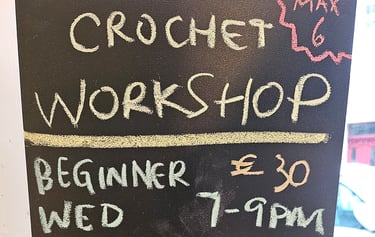 CROCHET
MAX
6
WORKSHOP
BEGINNER £30
WED 7-9PM